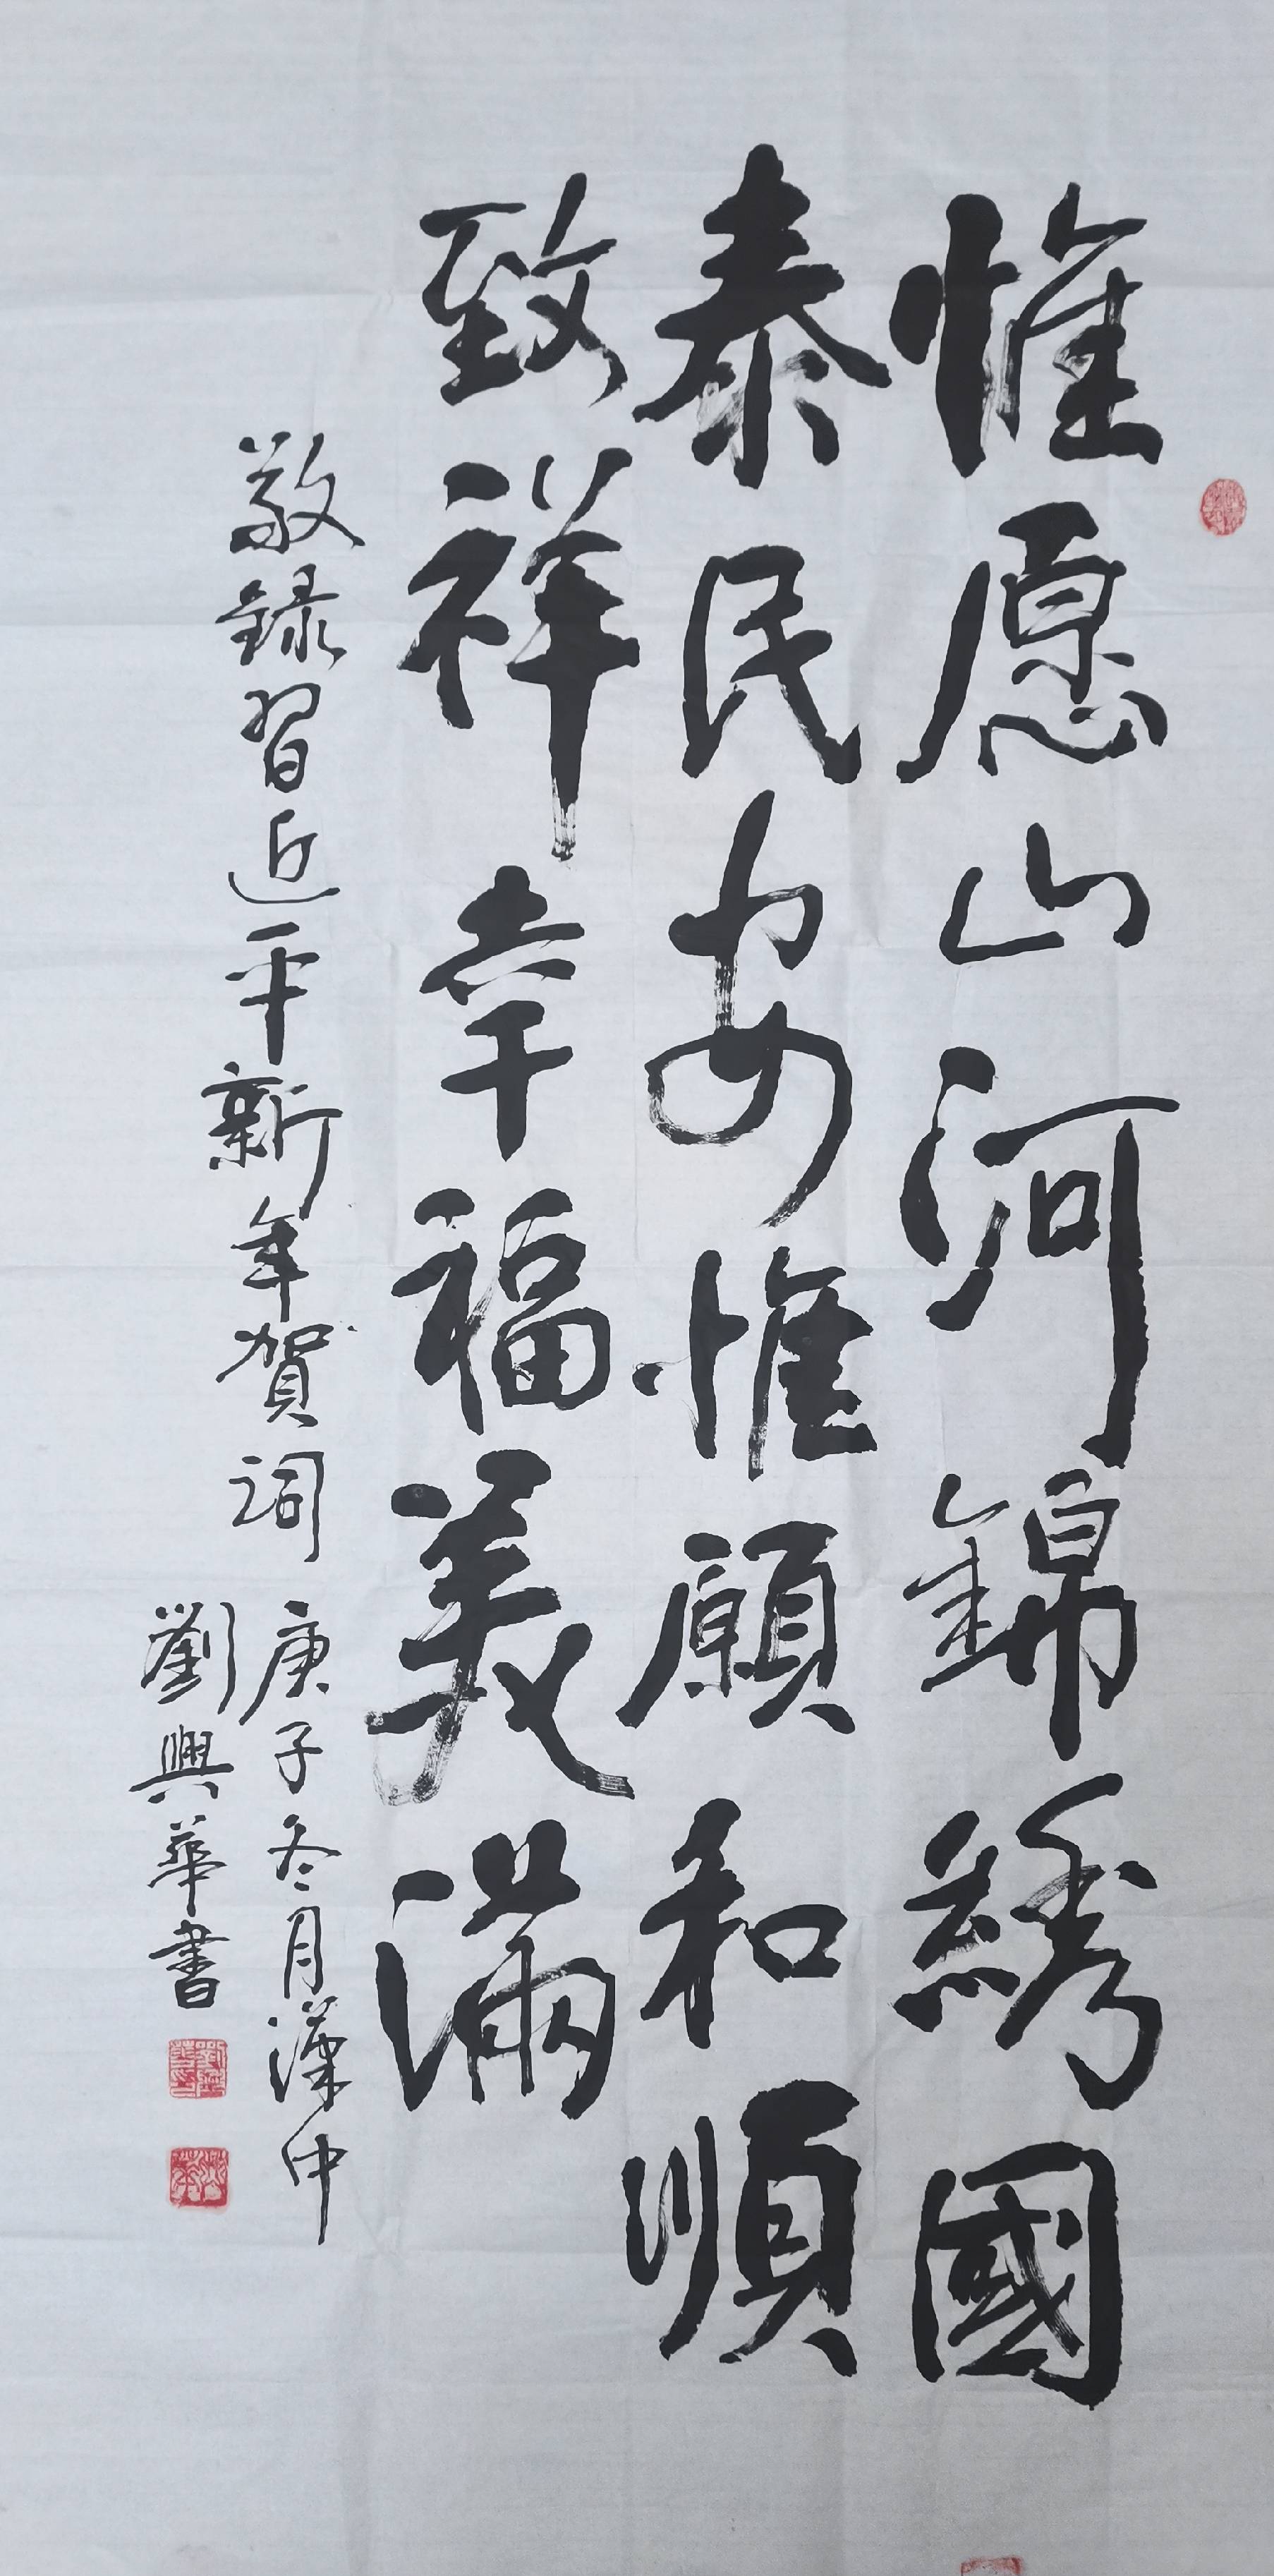 惟愿山河錦綉國
泰民安惟願和順
致祥幸福美滿
敬録習近平新年賀詞
庚子冬月漢中
劉興華書